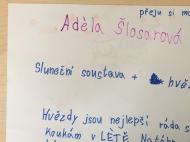 přeju si m
Adéla Šlosarová
Sluneční soustava + hvěz
Hvězdy jsou nejlepší ráda s
koukám v LÉTĚ. Na táb